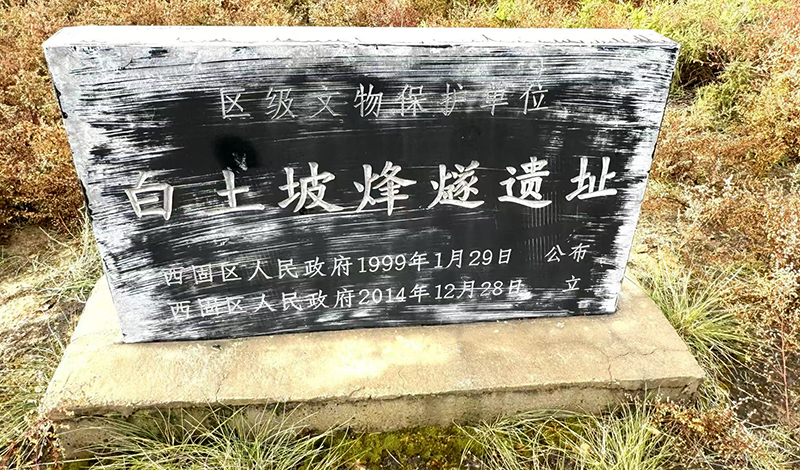 区级文物保护单位
白土坡烽燧遗址
西固区人民政府1999年1月29日 公布
西固区人民政府2014年12月28日 立